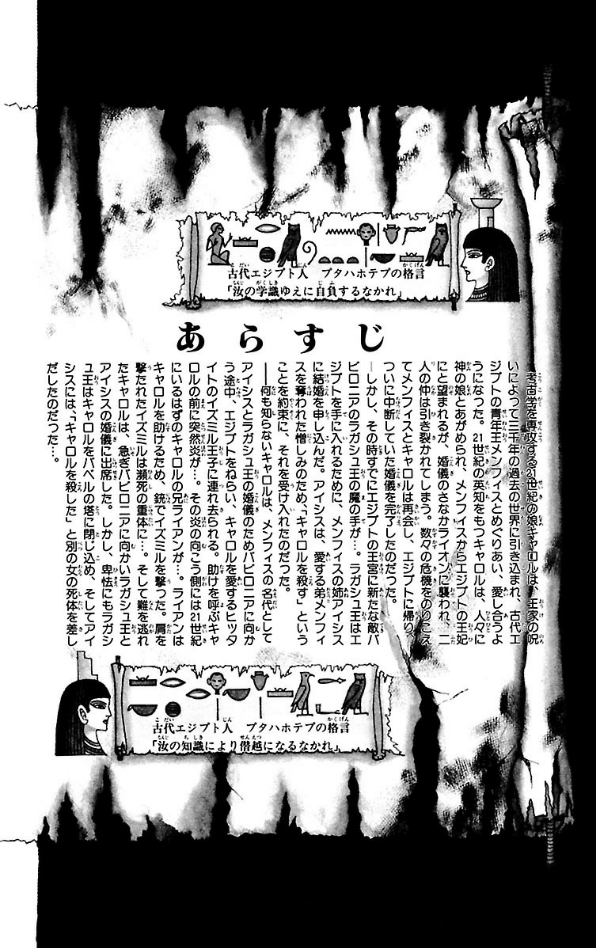 古代エジプト人　プタハホテプの格言
「汝の学識ゆえに自負するなかれ」
あらすじ
考古学を専攻する21世紀の娘キャロルは、王家の呪
いによって三千年の過去の世界に引き込まれ、古代エ
ジプトの青年王メンフィスとめぐりあい、愛し合うよ
うになった。21世紀の英知をもつキャロルは、人々に
神の娘とあがめられ、メンフィスからエジプトの王妃
にと望まれるが、婚儀のさなかライオンに襲われ、二
人の仲は引き裂かれてしまう。数々の危機をのりこえ
てメンフィスとキャロルは再会し、エジプトに帰り、
ついに中断していた婚儀を完了したのだった。
―しかし、その時すでにエジプトの王宮に新たな敵バ
ビロニアのラガシュ王の魔の手が…。ラガシュ王はエ
ジプトを手に入れるために、メンフィスの姉アイシス
に結婚を申し込んだ。アイシスは、愛する弟メンフィ
スを奪われた憎しみのため、「キャロルを殺す」という
ことを約束に、それを受け入れたのだった。
――何も知らないキャロルは、メンフィスの名代として
アイシスとラガシュ王の婚儀のためバビロニアに向か
う途中、エジプトをねらい、キャロルを愛するヒッタ
イトのイズミル王子に連れ去られる。助けを呼ぶキャ
ロルの前に突然炎が…。その炎の向こう側には21世紀
にいるはずのキャロルの兄ライアンが…。ライアンは
キャロルを助けるため、銃でイズミルを撃った。肩を
撃たれたイズミルは瀕死の重体に…。そして難を逃れ
たキャロルは、急ぎバビロニアに向かいラガシュ王と
アイシスの婚儀に出席した。しかし、卑怯にもラガシ
ュ王はキャロルをバベルの塔に閉じ込め、そしてアイ
シスには、「キャロルを殺した」と別の女の死体を差し
だしたのだった…。
古代エジプト人　プタハホテプの格言
「汝の知識により僭越になるなかれ」